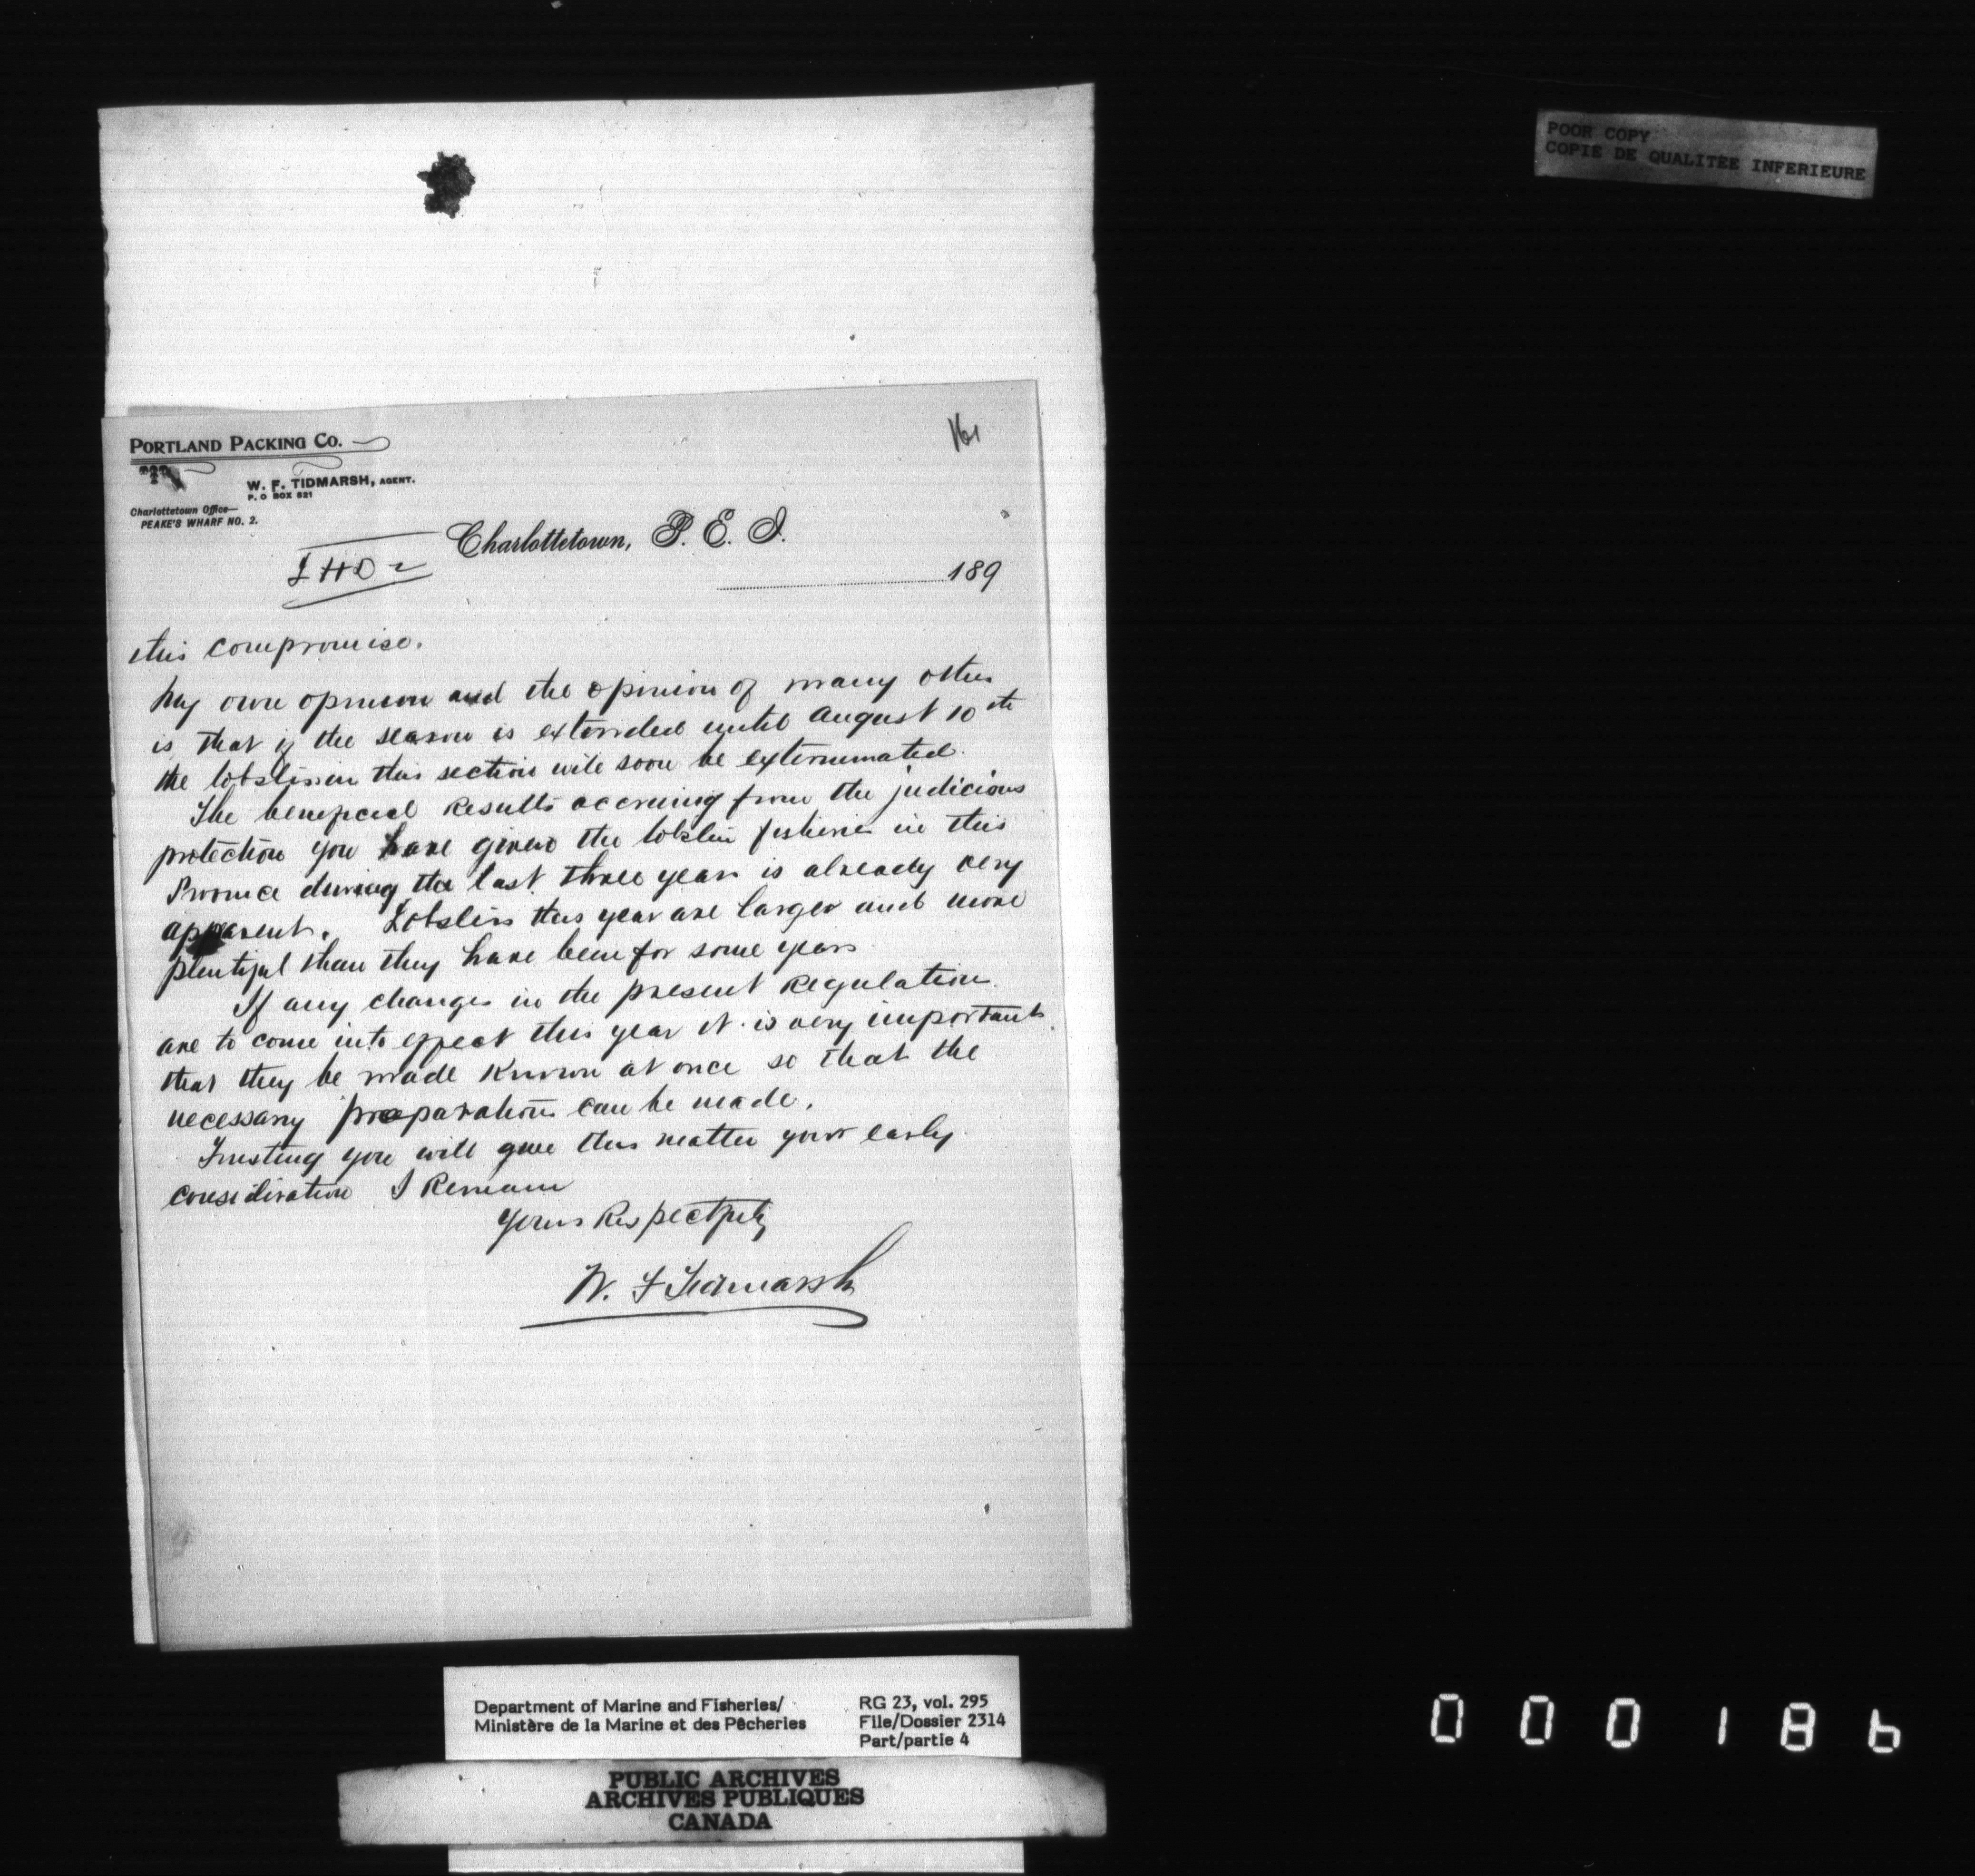 POOR COPY
COPIE DE QUALITEE INFERIEURE
161
PORTLAND PACKING CO.
W. F. TIDMARSH, AGENT.
P. O BOX 821
Charlottetown Office—
PEAKE'S WHARF NO. 2.
Charlottetown, P. E. I.
189
this compromise.
My own opinion and the opinion of many others
is that if the season is extended until August 10th
the lobsters in this section will soon be exterminated.
The beneficial Results accruing from the judicious
protection you have given the lobster fisheries in this
Province during the last three years is already very
apparent. Lobsters this year are larger and more
plentiful than they have been for some years
If any changes in the present Regulations
are to come into effect this year it is very important
that they be made known at once so that the
necessary preparations can be made.
Trusting you will give this matter your early
consideration I Remain
Yours Respectfully
W. F Tidmarsh
Department of Marine and Fisheries/
Ministère de la Marine et des Pêcheries
RG 23, vol. 295
File/Dossier 2314
Part/partie 4
PUBLIC ARCHIVES
ARCHIVES PUBLIQUES
CANADA
000186